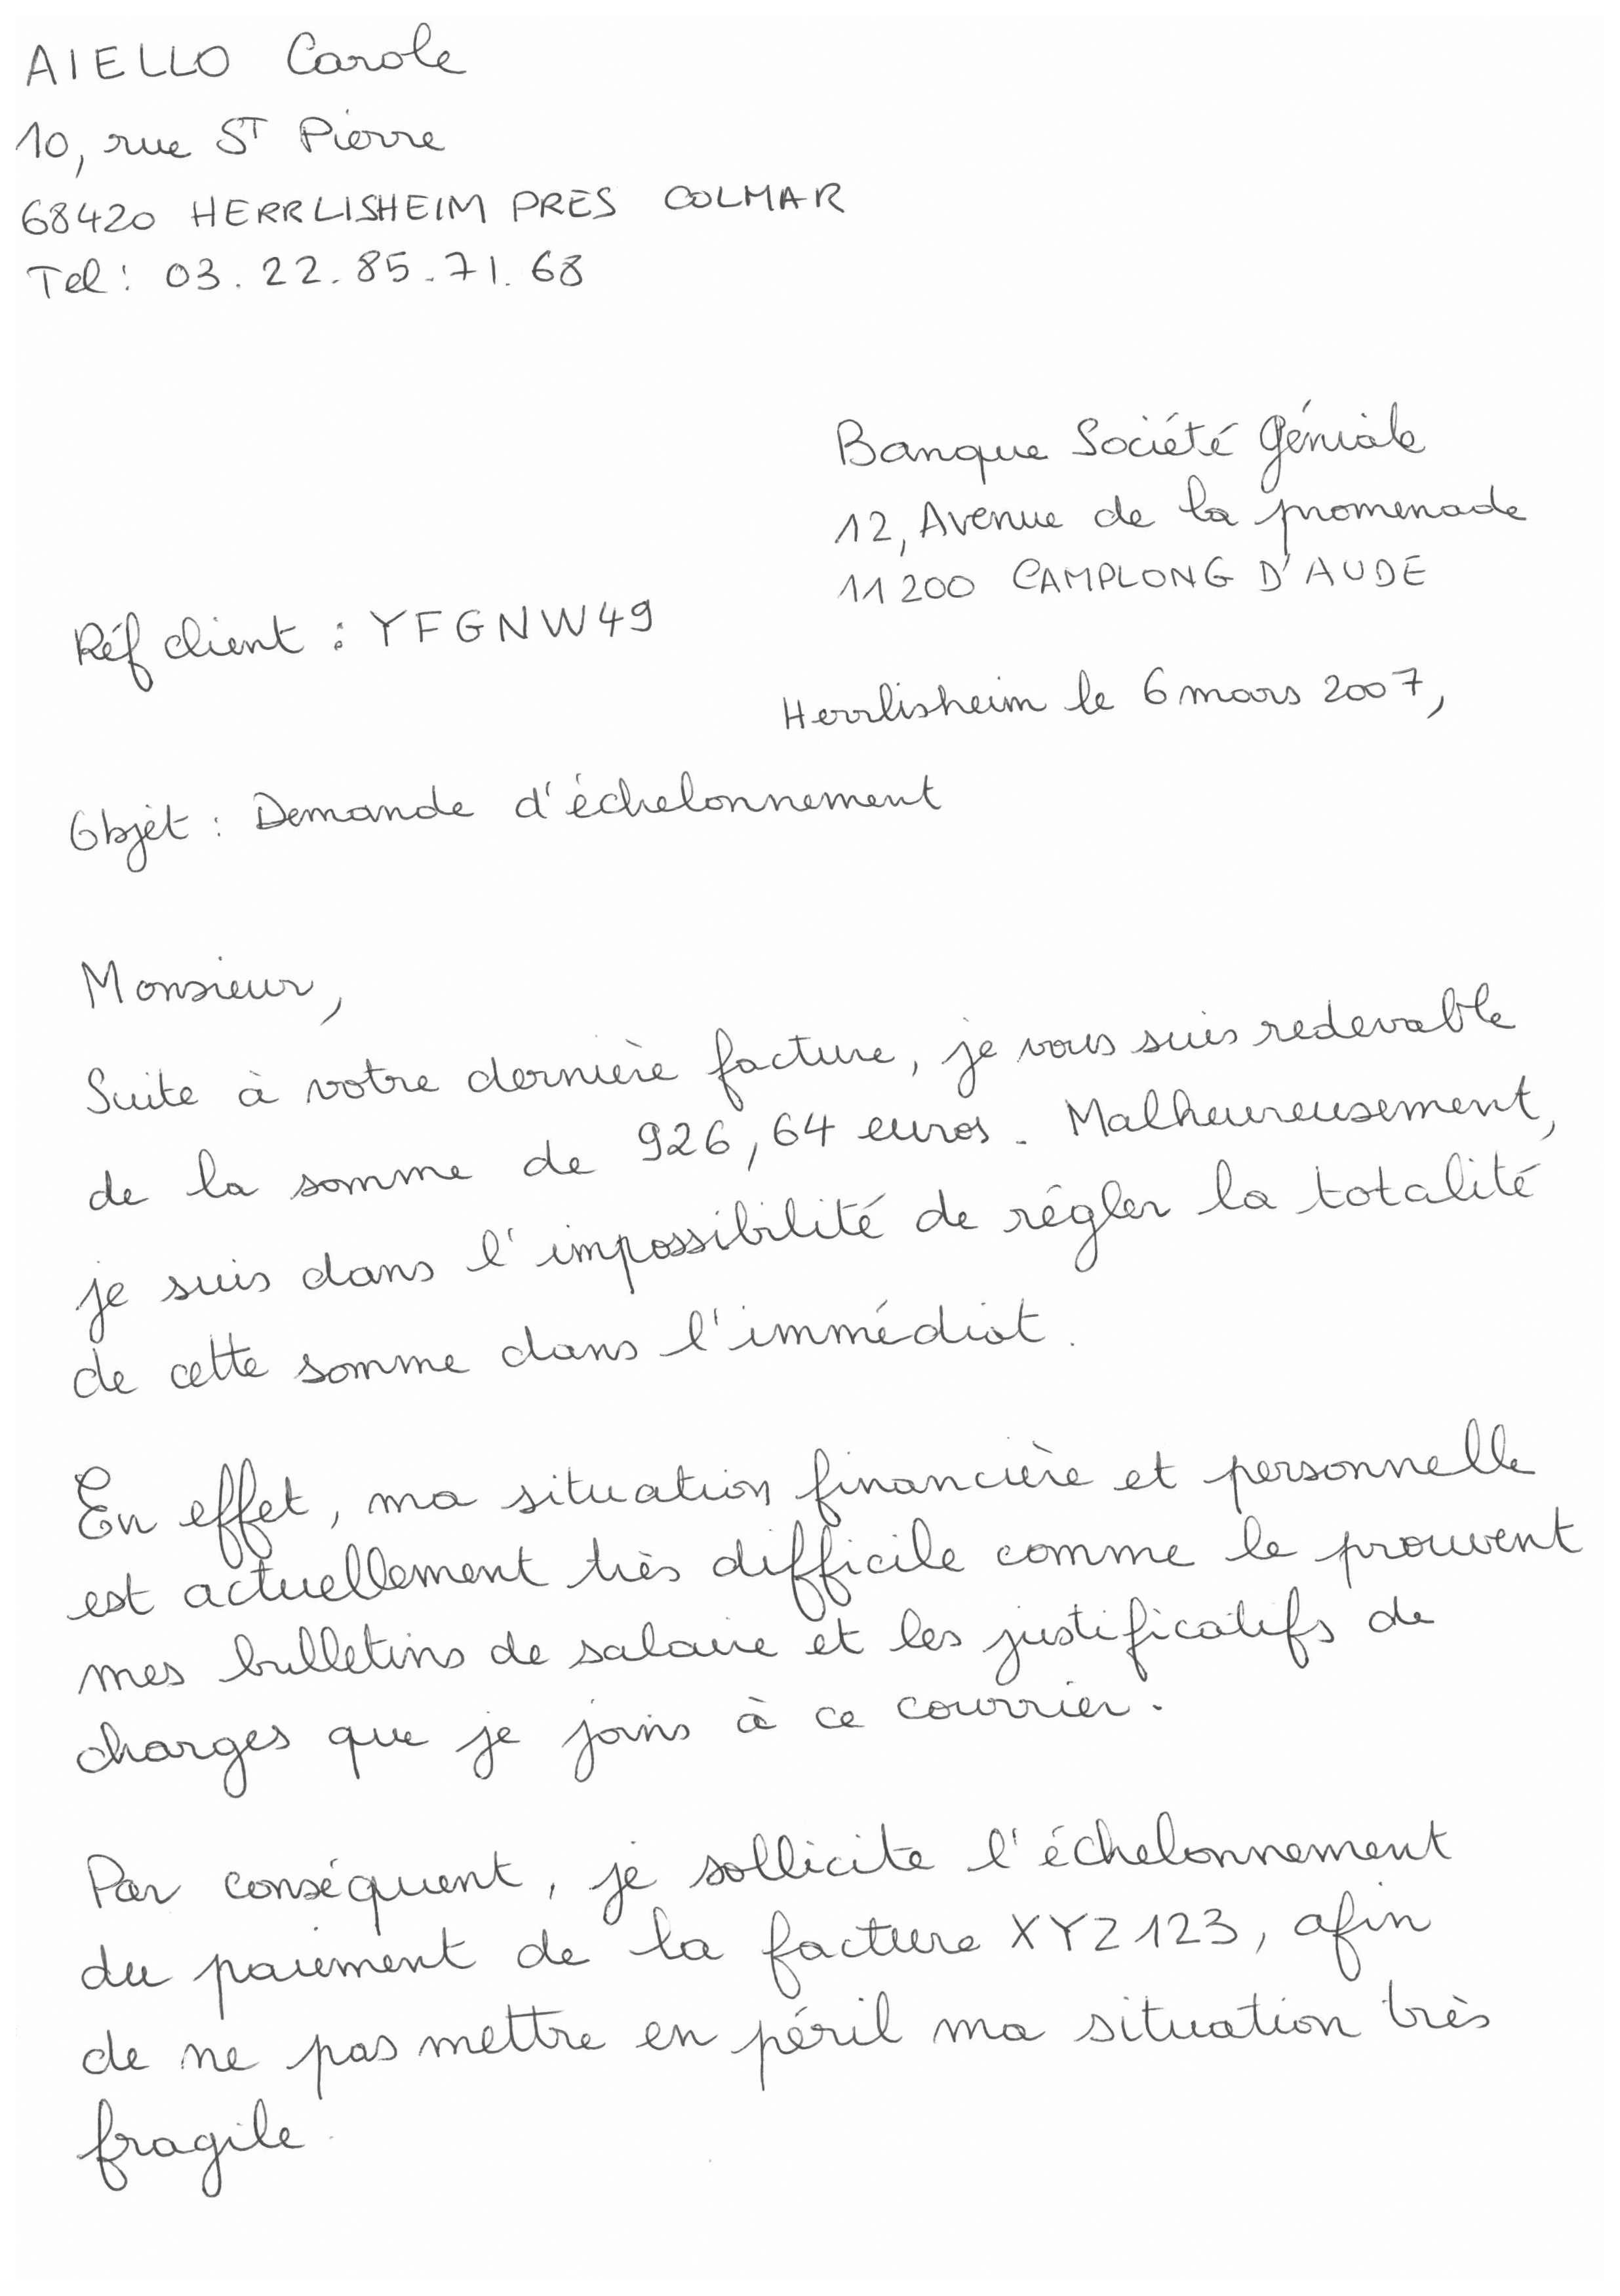 AIELLO Carole
10, rue ST Pierre
68420 HERRLISHEIM PRES COLMAR
Tel : 03.22.85.71.68
Banque Société Géniale
12, Avenue de la promenade
11200 CAMPLONG D'AUDE
Réf client : YFGNW49
Herrlisheim le 6 mars 2007,
Objet : Demande d'échelonnement
Monsieur,
Suite à votre dernière facture, je vous suis redevable
de la somme de 926,64 euros. Malheureusement,
je suis dans l'impossibilité de régler la totalité
de cette somme dans l'immédiat.
En effet, ma situation financière et personnelle
est actuellement très difficile comme le prouvent
mes bulletins de salaire et les justificatifs de
charges que je joins à ce courrier.
Par conséquent, je sollicite l'échelonnement
du paiement de la facture XYZ123, afin
de ne pas mettre en péril ma situation très
fragile.